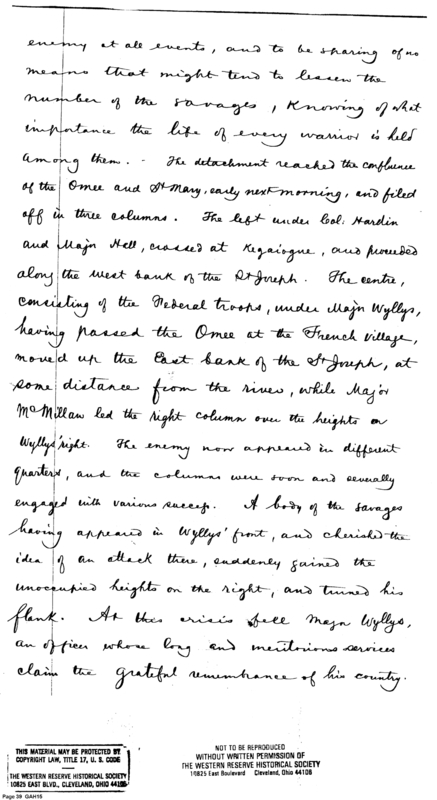 enemy at all events, and to be sparing of no
means that might tend to lessen the
number of the savages, knowing of what
importance the life of every warrior is held
among them. - The detachment reached the confluence
of the Omee and St Mary, early next morning, and filed
off in three columns. The left under Col: Hardin
and Major Hall, crossed at Kegaiogue, and proceeded
along the west bank of the St Joseph. The centre,
consisting of the Federal troops, under Majr Wyllys,
having passed the Omee at the French village,
moved up the East bank of the St Joseph, at
some distance from the river, while Major
McMillan led the right column over the heights on
Wyllys' right. The enemy now appeared in different
quarters, and the columns were soon and severally
engaged with various success. A body of the savages
having appeared in Wyllys' front, and cherished the
idea of an attack there, suddenly gained the
unoccupied heights on the right, and turned his
flank. At this crisis fell Majr Wyllys,
an officer whose long and meritorious services
claim the grateful remembrance of his country.
THIS MATERIAL MAY BE PROTECTED BY
COPYRIGHT LAW, TITLE 17, U. S. CODE
THE WESTERN RESERVE HISTORICAL SOCIETY
10825 EAST BLVD., CLEVELAND, OHIO 44106
NOT TO BE REPRODUCED
WITHOUT WRITTEN PERMISSION OF
THE WESTERN RESERVE HISTORICAL SOCIETY
10825 East Boulevard Cleveland, Ohio 44106
Page 39 GAH15